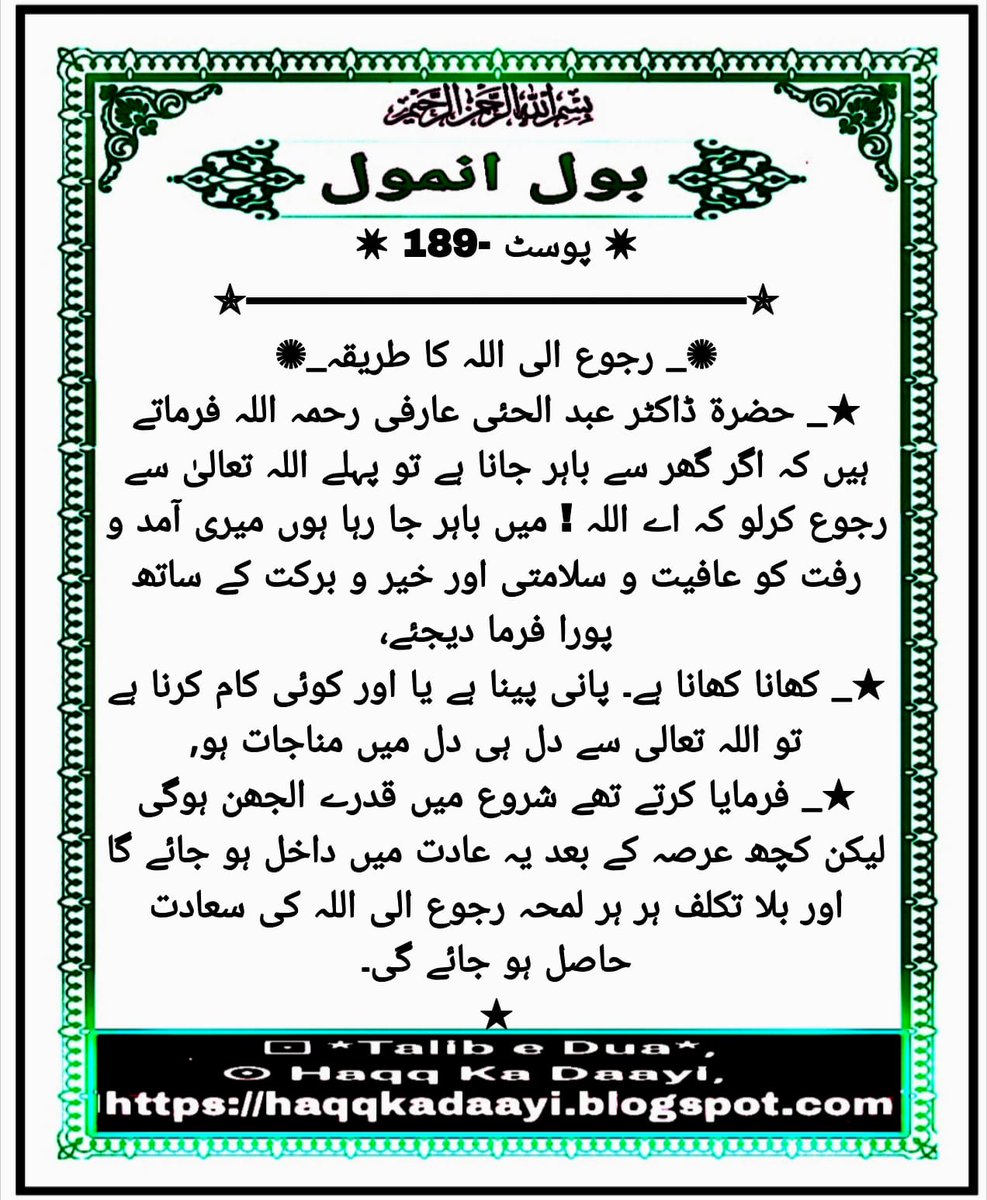 بسم الله الرحمن الرحيم
بول انمول
✷ پوسٹ -189 ✷
✯━━━━━━━━━━━━✯
✺_ رجوع الی اللہ کا طریقہ_✺
★_ حضرۃ ڈاکٹر عبد الحئی عارفی رحمہ اللہ فرماتے
ہیں کہ اگر گھر سے باہر جانا ہے تو پہلے اللہ تعالیٰ سے
رجوع کرلو کہ اے اللہ ! میں باہر جا رہا ہوں میری آمد و
رفت کو عافیت و سلامتی اور خیر و برکت کے ساتھ
پورا فرما دیجئے،
★_ کھانا کھانا ہے۔ پانی پینا ہے یا اور کوئی کام کرنا ہے
تو اللہ تعالی سے دل ہی دل میں مناجات ہو,
★_ فرمایا کرتے تھے شروع میں قدرے الجھن ہوگی
لیکن کچھ عرصہ کے بعد یہ عادت میں داخل ہو جائے گا
اور بلا تکلف ہر ہر لمحہ رجوع الی اللہ کی سعادت
حاصل ہو جائے گی۔
★
*Talib e Dua*,
Haqq Ka Daayi,
https://haqqkadaayi.blogspot.com